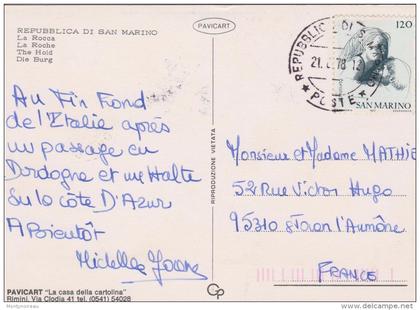 REPUBBLICA DI SAN MARINO
La Rocca
La Roche
The Hold
Die Burg
PAVICART
Au Fin Fond
de l'Italie après
un passage en
Dordogne et une Halte
su la côte D'Azur
A Bientôt
Michelle
PAVICART "La casa della cartolina"
Rimini, Via Clodia 41 tel. (0541) 54028
RIPRODUZIONE VIETATA
REPUBBLICA DI S
21. 78 12
POSTE
120
SAN MARINO
Monsieur et Madame MATHIE
52 Rue Victor Hugo
95310 St Ouen l'Aumône
FRANCE